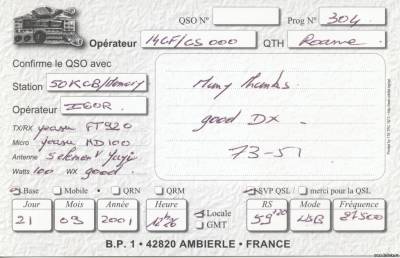 QSO N° Prog N° 304
Opérateur 14CF/CS 000 QTH Roanne
Confirme le QSO avec
Station 50KCB/
Opérateur IGOR
TX/RX yaesu FT 920
Micro yaesu MD 100
Antenne 5 element Yagi
Watts 100 WX good
Many thanks
good DX
73-51
Base Mobile QRN QRM SVP QSL merci pour la QSL
Jour Mois Année Heure Locale GMT RS Mode Fréquence
21 03 2001 USB
B.P. 1 • 42820 AMBIERLE • FRANCE